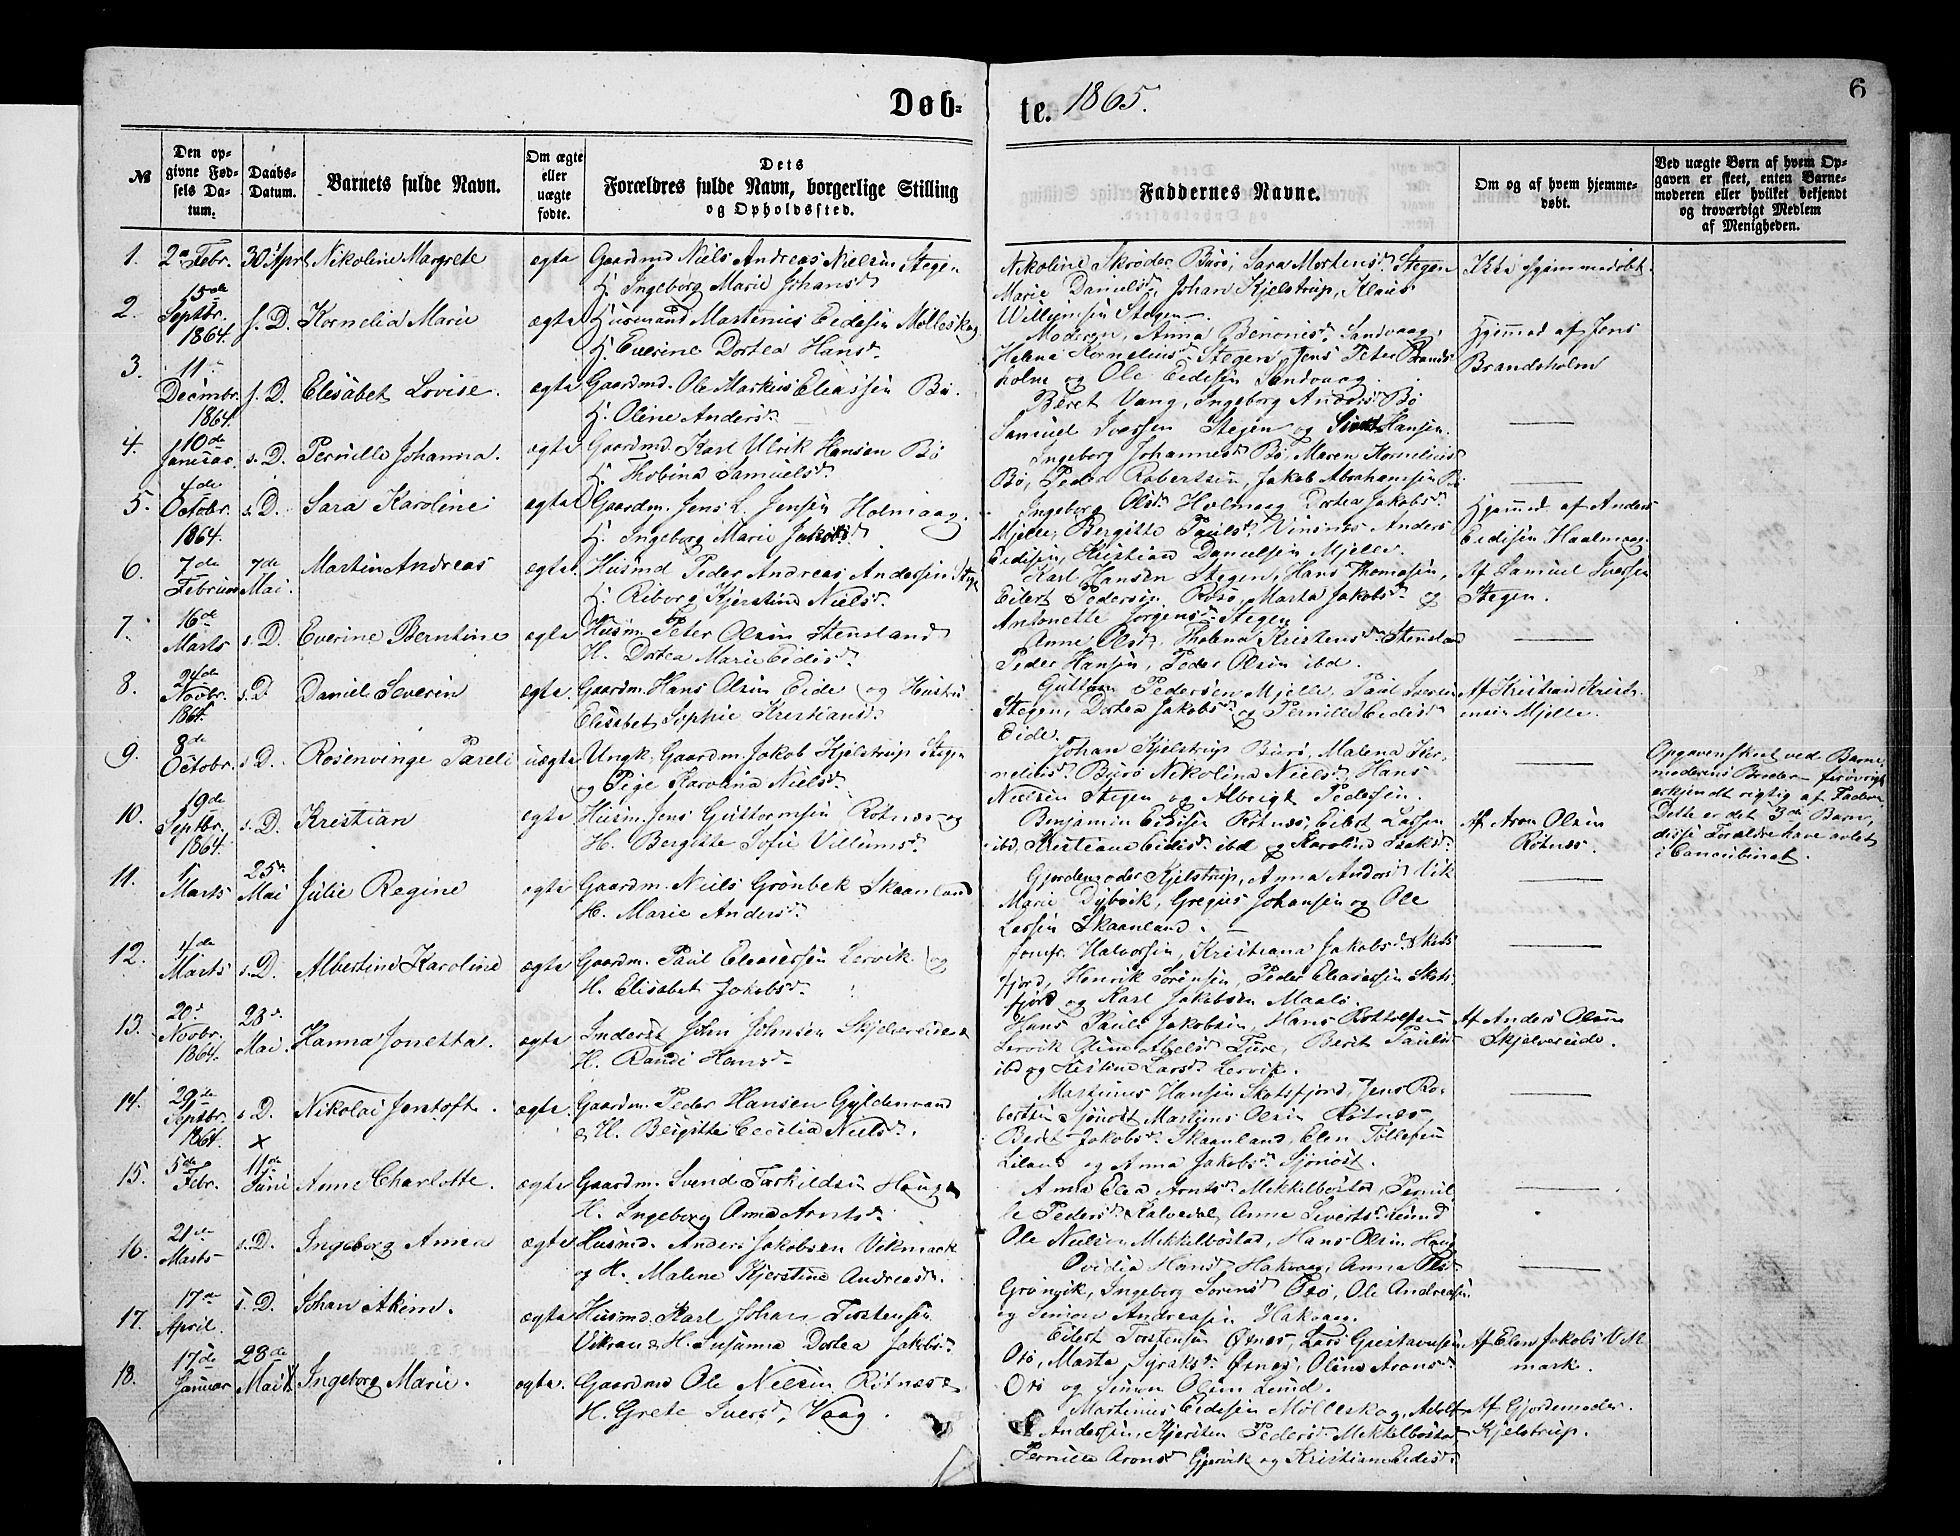 Døb-
te. 1865.
6
№
Den opgivne Fødsels Datum.
Daabs-Datum.
Barnets fulde Navn.
Om ægte eller uægte fødte.
Dets Forældres fulde Navn, borgerlige Stilling og Opholdssted.
Faddernes Navne.
Om og af hvem hjemmedøbt.
Ved uægte Børn af hvem Opgaven er skeet, enten Barnemoderen eller hvilket bekjendt og troværdigt Medlem af Menigheden.
1. 2 Febr. 30 April Nikoline Margrete ægte Gaardmd Niels Andreas Nielsen Stegen
H. Ingeborg Marie Johansd.
Nikoline Skrøder Burö, Sara Mortensd. Stegen
Marie Danielsd., Johan Kjelstrup, Klaus
Willumsen Stegen.
Ikke hjemmedøbt.
2. 15de Septbr. 1864. s. D. Kornelia Marie ægte Husmand Martenius Eidesen Mølleskog
H. Everine Dortea Hansd.
Moderen, Anna Benonisd. Sandvaag,
Helena Korneliusd. Stegen, Jens Peter Brands-
holm og Ole Eidesen Sandvaag.
Hjemmed af Jens
Brandsholm
3. 11 Decmbr. 1864. s. D. Elisabet Lovise. ægte Gaardmd. Ole Markus Eliassen Bö.
H. Oline Andersd.
Beret Vang, Ingeborg Andersd. Bö
Samuel Iverssen Stegen og Hansen.
4. 10de Januar s. D. Pernille Johanna. ægte Gaardmd. Karl Ulrik Hansen Bö
H. Thobina Samuelsd.
Ingeborg Johannesd. Bö, Maren Korneliusd.
Bö, Peder Robertsen, Jakob Abrahamsen Bö
5. 4de October 1864. s. D. Sara Karoline ægte Gaardm. Jens L. Jensen Holmvaag.
H. Ingeborg Marie Jakobsd.
Ingeborg Olsd. Holmvag Dortea Jakobsd.
Mjelle, Bergitte Paulsd. Vinsnes Anders
Eidesen, Kristian Danielsen Mjelle.
Hjemmed af Anders
Eidesen Haalmvaag.
6. 7de Februar 7de Mai. Martin Andreas ægte Husmd Peder Andreas Andersen Stegen
H. Riborg Kjerstine Nielsd.
Karl Hansen Stegen, Hans Thomesen,
Eilert Pedersen Rösö, Marta Jakobsd. og
Antonette Jørgensd. Stegen.
Af Samuel Iversen
Stegen.
7. 16de Marts s. D. Everine Berntine ægte Husm. Peter Olsen Stensland
H. Dortea Marie Eidisd.
Anne Olsd., Tholena Kristensd. Stensland
Peder Hansen, Peder Olsen ibd.
8. 24de Novbr. 1864. s. D Daniel Severin ægte Gaardm. Hans Olsen Eide og Hustru
Elisabet Sophie Kristiansd.
Guttorm Pedersen Mjelle, Paul Iversen
Stegen, Dortea Jakobsd. og Pernille Eidisd.
Eide.
Af Kristian Krist-
ensen Mjelle.
9. 8de Octobr. s. D. Rosenvinge Pareli uægte Ungk. Gaardm. Jakob Kjelstrup Stegen
og Pige Karolina Nielsd.
Johan Kjelstrup Burö, Malena Kor-
neliusd. Burö Nikolina Nielsd. Hans
Nielsen Stegen og Albrigt Pedersen.
Opgaven skeet ved Barne-
moderens Broder forøvrigt
erkjendt rigtig af Faderen
Dette er det 3de Barn,
disse Forældre have avlet
i Concubinat.
10. 19de Septbr. 1864 s. D. Kristian ægte Husm. Jens Guttormsen Rötnæs og
H. Bergitte Sofie Villumsd.
Benjamin Eidisen Rötnæs, Eilert Larsen
ibd, Kristiane Eidisd. ibd og Karoline Isaksd.
Af Aron Olsen
Rötnæs.
11. 1 Marts 25de Mai Julie Regine ægte Gaardm. Niels Grönbek Skaanland
H. Marie Andersd.
Gjordemoder Kjelstrup, Anna Andersd. Vik
Marie Dybvik, Gregus Johansen og Ole
Larsen Skaanland.
12. 4de Marts s. D. Albertine Karoline ægte Gaardm. Paul Eleasersen Lervik og
H. Elisabet Jakobsd.
Jomfr. Halvorsen, Kristiana Jakobsd. Skots-
fjord, Henrik Sörensen, Peder Eleasersen Skots-
fjord og Karl Jakobsen Maalö.
13. 20d. Novbr. 1864. 28d. Mai. Hanna Jonetta. ægte Inderst John Johnsen Skjelvereide &
H. Randi Hansd.
Hans Pauls Jakobsen, Hans Rottolfsen
Lervik Oline Abelsd. Ture, Berit Paulsd.
ibd og Kistine Larsd. Lervik.
Af Anders Olsen
Skjelvereide.
14. 29de Septbr. 1864. s. D. × Nikolai Jentoft. ægte Gaardm. Peder Hansen Gyldenvand
& H. Bergitte Cecilia Nielsd.
Martinus Hansen Skotsfjord Jens Ro-
bertsen Sjönöst Martinus Olsen Rötnæs
Beret Jakobsd. Skaanland, Elen Tollefsen
Leiland og Anna Jakobsd. Sjönöst.
15. 5de Febr. 11de Juni Anne Charlotte. ægte Gaardm. Svend Torkildsen Haug &
H. Ingeborg Anna Arntsd.
Anna Elea Arntsd. Mikkelbostad, Pernil-
le Pedersd. Kalvedal, Anne Sivertsd. Lund
Ole Nielsen Mikkelbostad, Hans Olsen Haug
16. 21de Marts s. D. Ingeborg Anna ægte Husmd. Anders Jakobsen Vikmark
og H. Malene Kjerstine Andreasd.
Ovidia Hansd. Hakvaag, Anna Olsd
Grönvik, Ingeborg Sörensd. Orö, Ole Andreassen
og Simon Andreasen Hakvaag.
17. 17de April. s. D. Johan Akim. ægte Husmd. Karl Johan Torstensen
Vikran & H. Susanna Dortea Jakobsd.
Eilert Torstensen Örnes, Lars Gustavusen
Orö, Marta Syraksd. Örnes, Olina Aronsd.
Orö og Simon Olsen Lund.
Af Elen Jakobs Vik-
mark.
18. 17de Januar 28de Mai Ingeborg Marie. ægte. Gaardmd Ole Nielsen Rötnæs &
H. Grete Iversd. Vaag.
Martinus Eidisen Mölleskog, Adolf
Andersen, Kjersten Pedersd. Mikkelbostad
Pernille Aronsd. Gjervik og Kristiane Eidisd.
Af Gjordemoder
Kjelstrup.